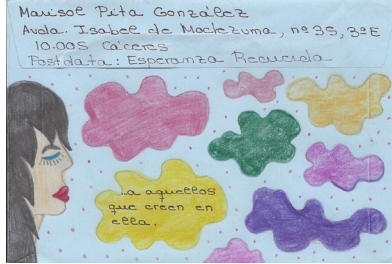 Marisol Pita González
Avda. Isabel de Moctezuma, nº 35, 3º E
10.005 Cáceres
Postdata: Esperanza Recuerda
...a aquellos
que creen en
ella.